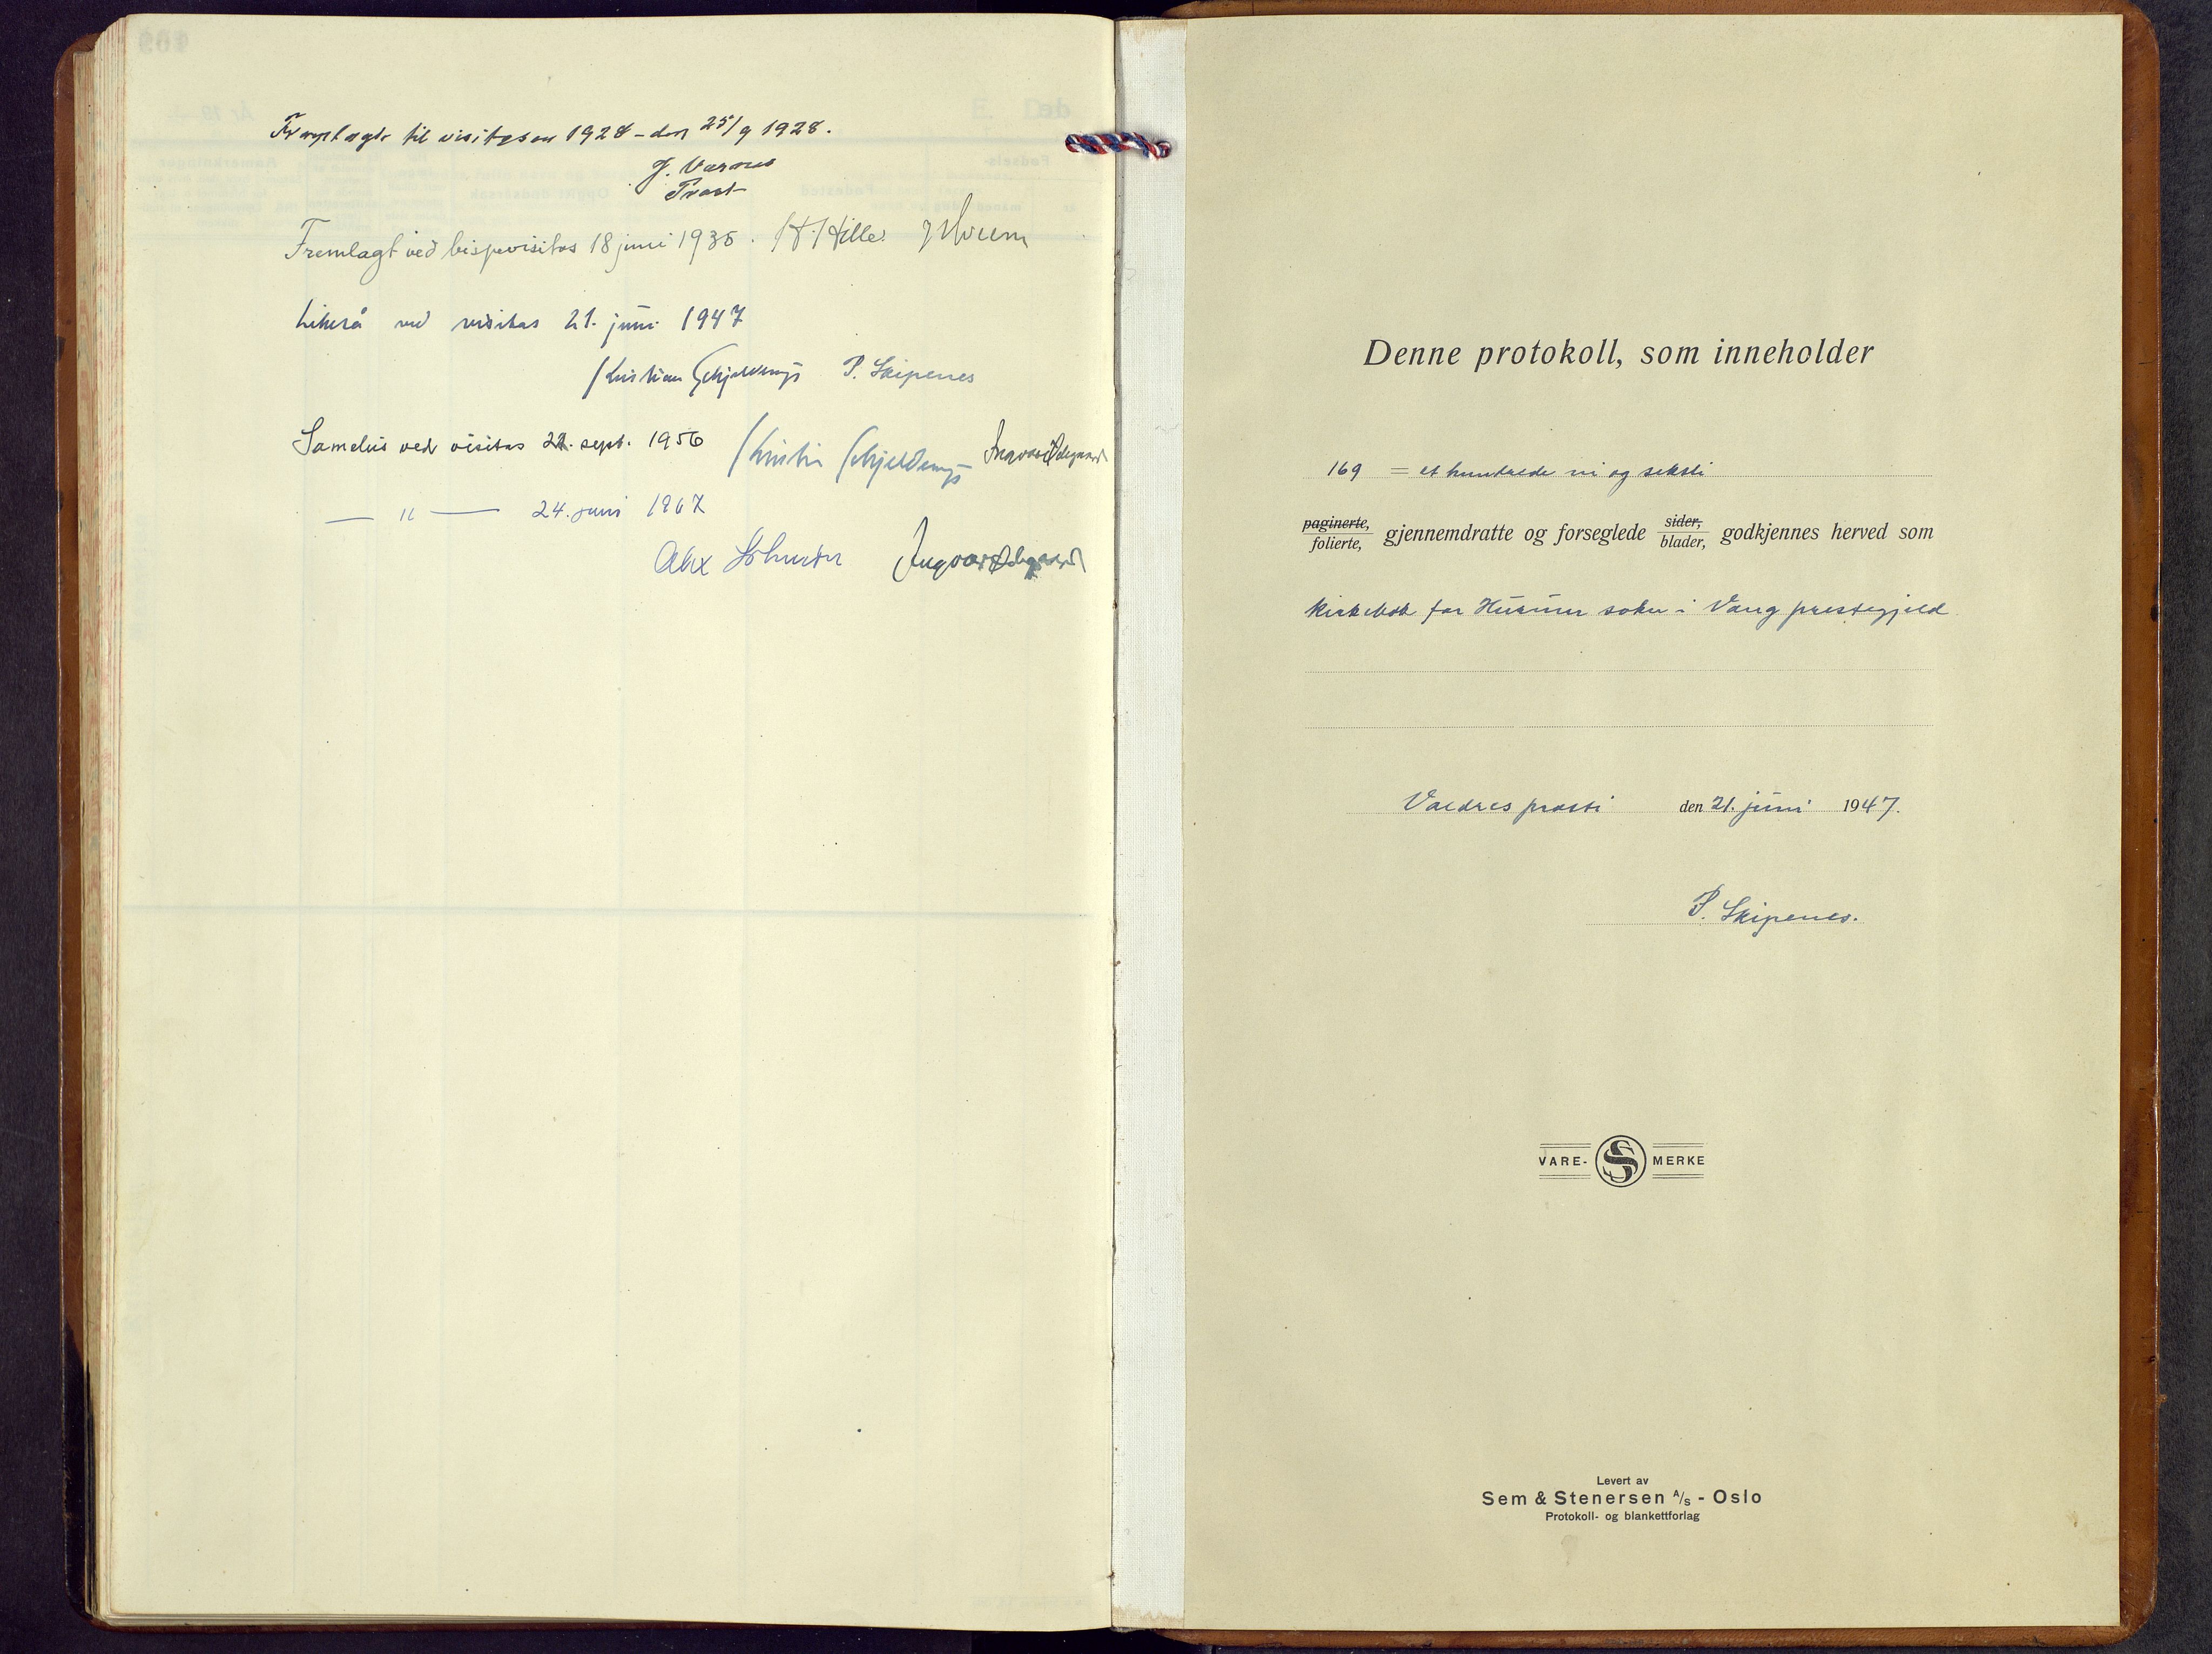 Fremlagt til visitasen 1928 - den 25/9 1928.
J. Varnes
Prost
Fremlagt ved bispevisitas 18 juni 1935. H. Hille.
Likeså ved visitas 21. juni 1947
Kristian Schjelderup P. Skipenes
Sameleis ved visitas 22. sept. 1956 Kristian Schjelderup Ingvar Ødegaard
— " — 24. juni 1967
Alex Johnson Ingvar Ødegaard
Denne protokoll, som inneholder
169 = et hundrede ni og seksti
paginerte,
folierte, gjennemdratte og forseglede sider,
blader, godkjennes herved som
kirkebok for Hurum sokn i Vang prestegjeld
Valdres prosti den 21. juni 1947.
P. Skipenes.
VARE- S MERKE
Levert av
Sem & Stenersen A/s - Oslo
Protokoll- og blankettforlag